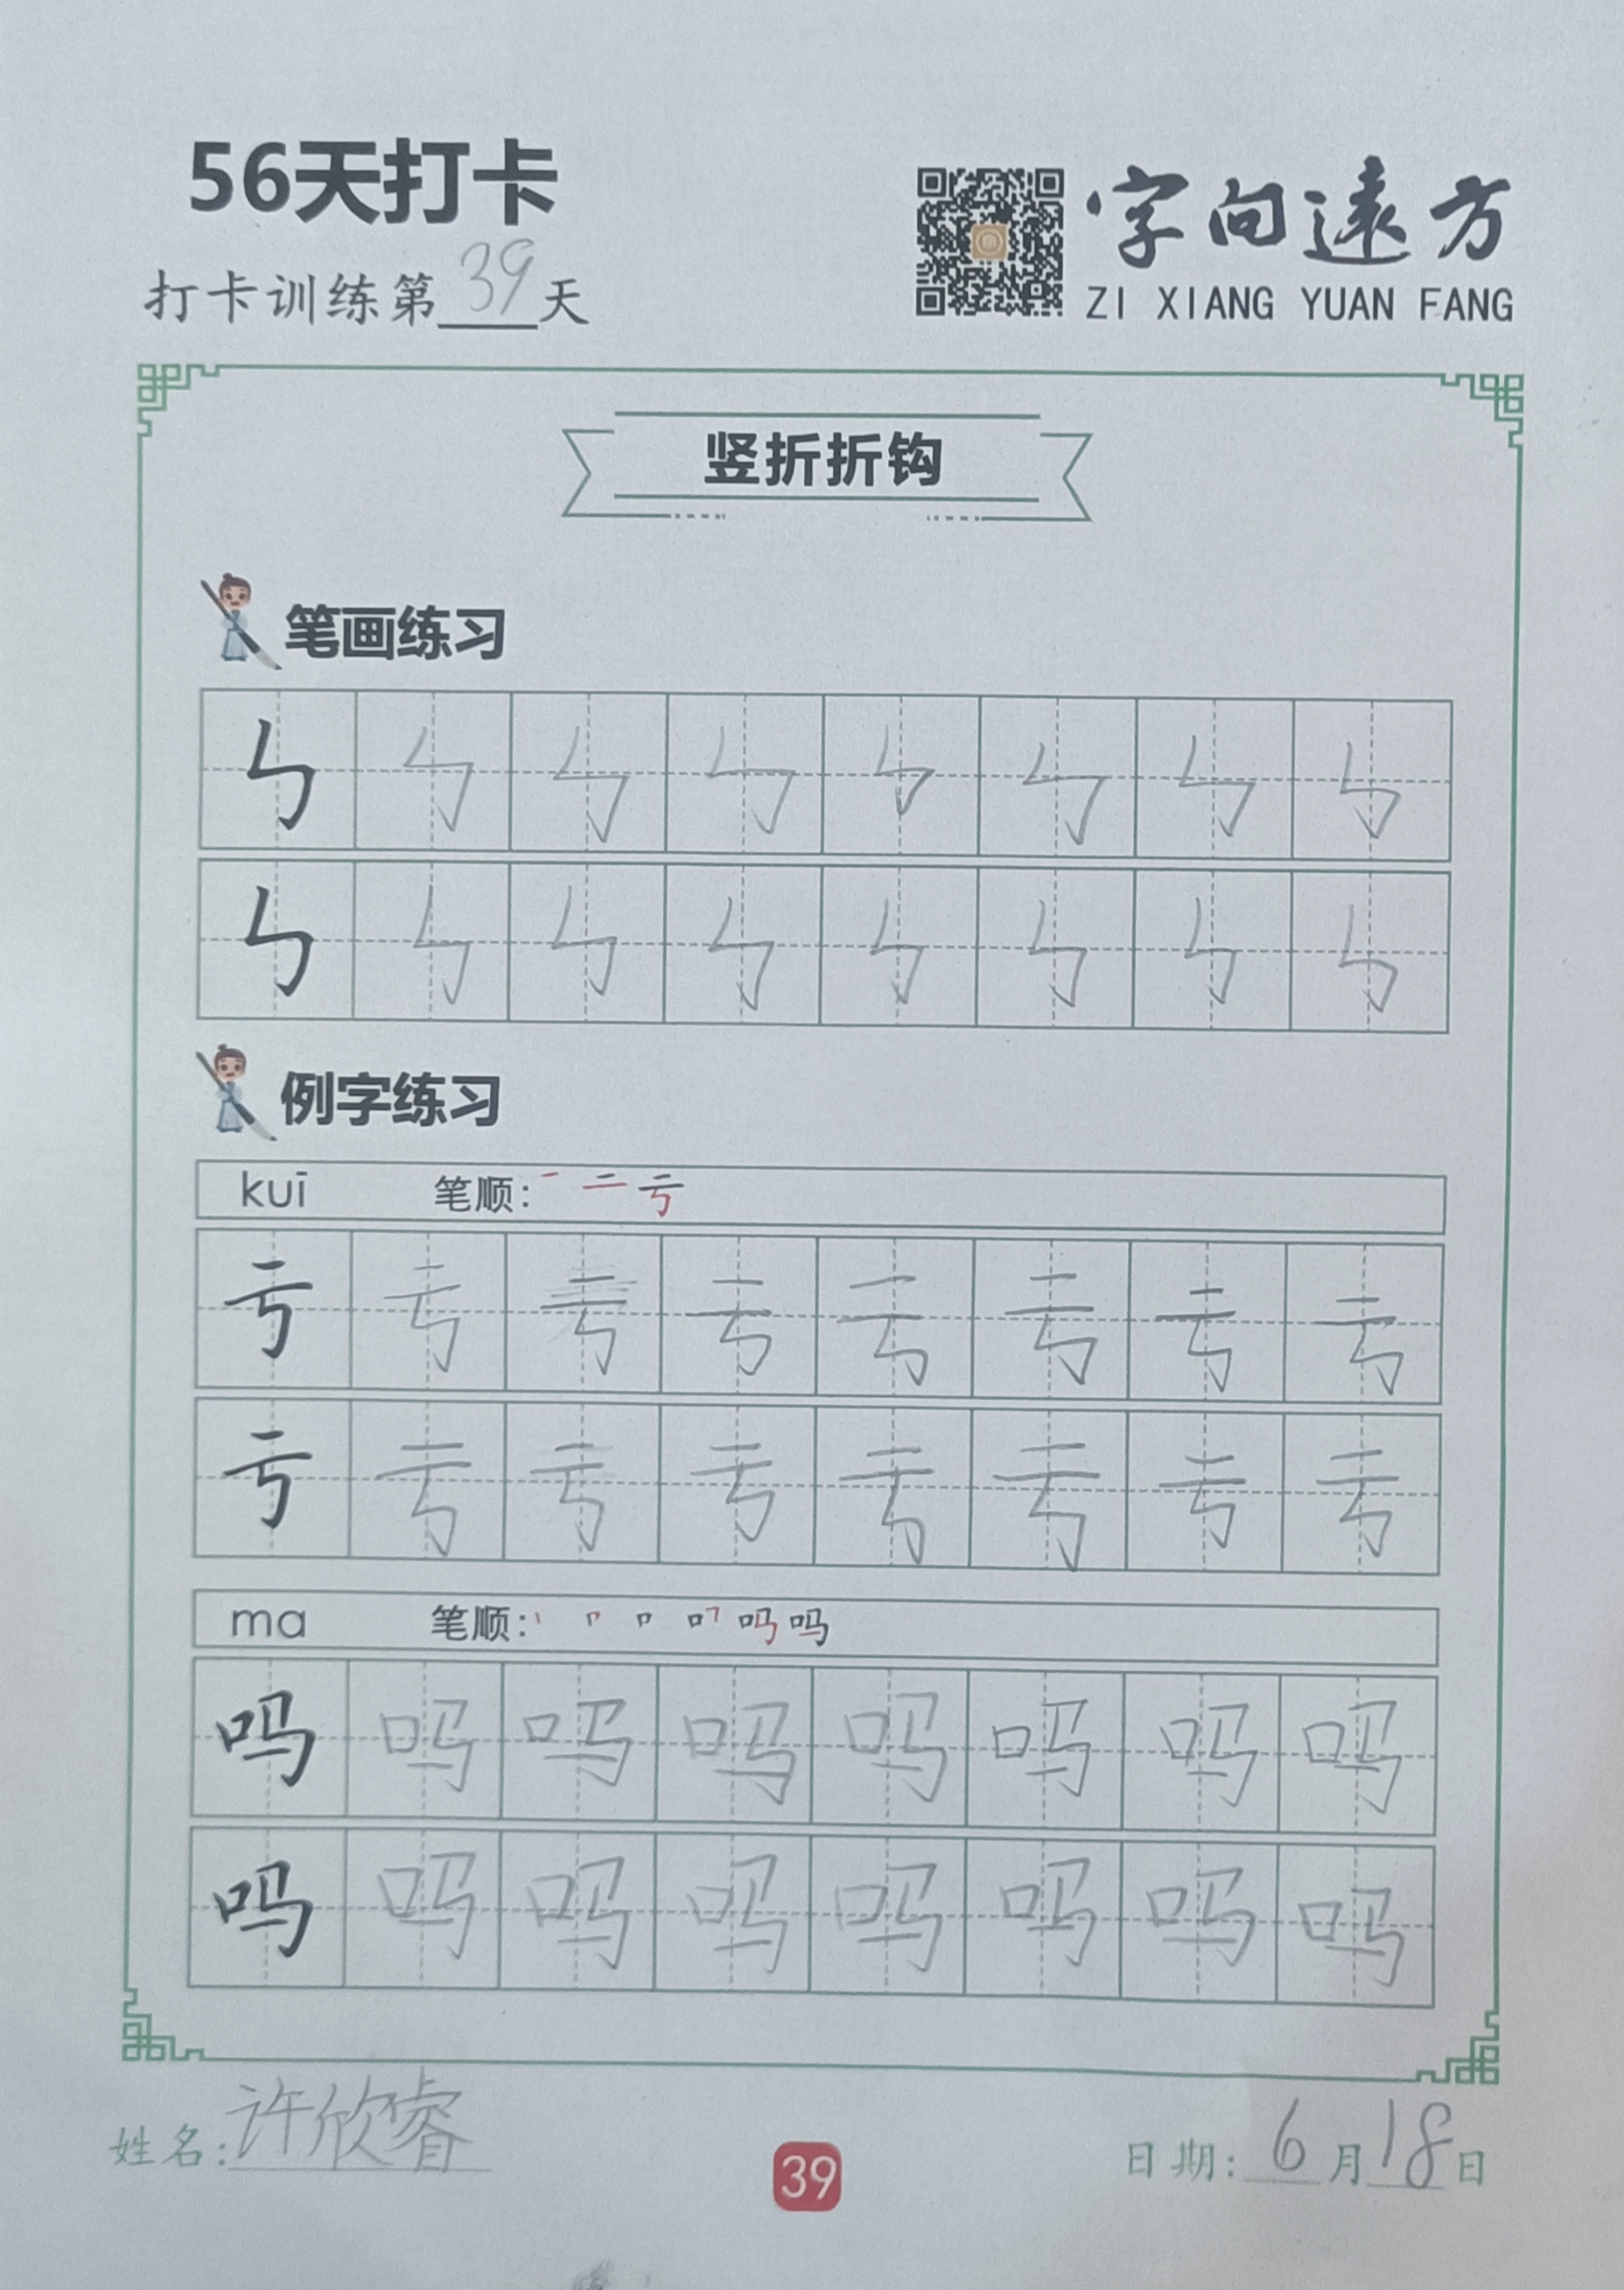 56天打卡
打卡训练第39天
字向遠方
ZI XIANG YUAN FANG
竖折折钩
笔画练习
㇉ ㇉ ㇉ ㇉ ㇉ ㇉ ㇉ ㇉
㇉ ㇉ ㇉ ㇉ ㇉ ㇉ ㇉ ㇉
例字练习
kuī 笔顺: 一 二 亏
亏 亏 亏 亏 亏 亏 亏 亏
亏 亏 亏 亏 亏 亏 亏 亏
ma 笔顺: 吗 吗
吗 吗 吗 吗 吗 吗 吗 吗
吗 吗 吗 吗 吗 吗 吗 吗
姓名: 许欣睿
39
日期: 6月18日